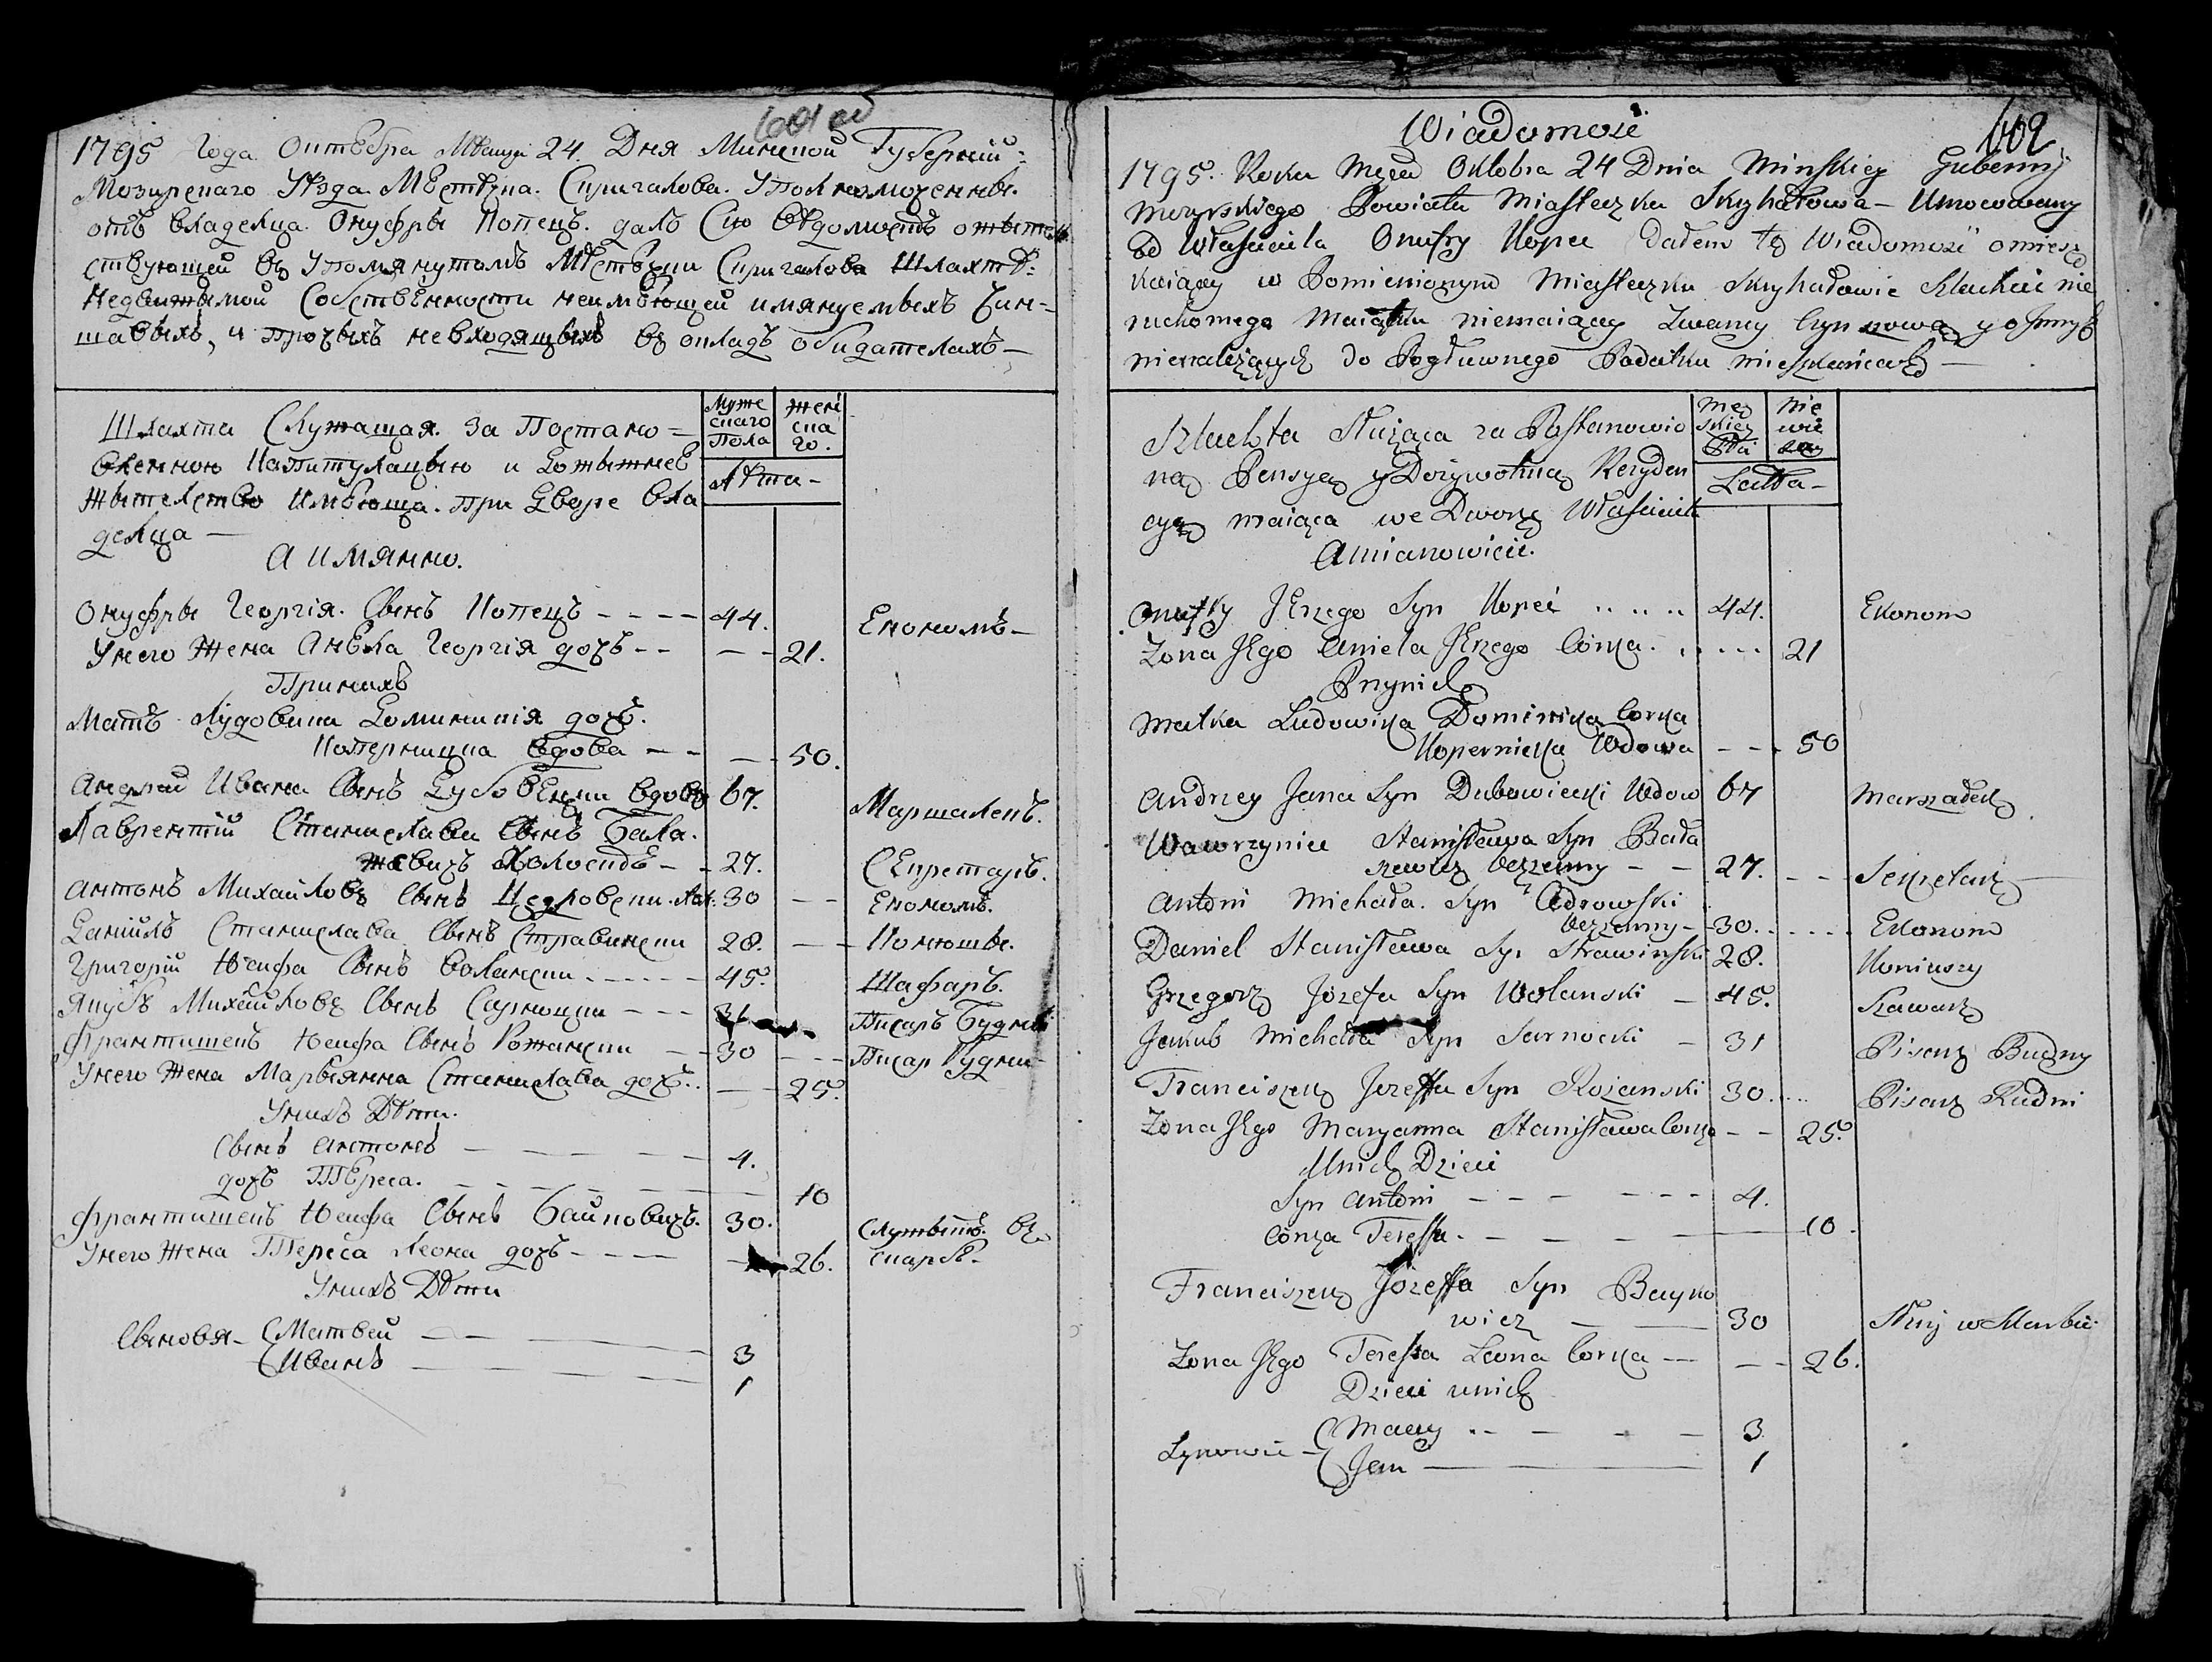 601 об
1795 Года Октебра Мѣсяца 24 Дня Минской Губерний:
Мозирскаго Уѣзда Мѣстечка Скригалова Уполномоченны
отъ владелца Онуфры Копецъ далъ Сию Вѣдомость о жытел
ствующей въ Упомянутомъ Мѣстечки Скригалова Шляхтѣ:
Недвижымой Собственности неимѣющей имянуемыхъ Чин-
шавыхъ, и прочыхъ невходящыхъ въ окладъ обидателахъ —
Шляхта Служащая за Постано =
вленною Капитулацыю и
Жытелство Имѣюща при Дворе Вла
делца —
А имянно.
Муже
скаго
Пола
жен
ска
го.
Лѣта -
Онуфры Георгія Сынъ Копецъ - - - - 44. Економъ -
Унего Жена Анѣла Георгія дочъ - - - - 21.
Принихъ
Матъ Лудовика Доминикія дочъ
Коперницка вдова - - - - 50.
Андрей Ивана Сынъ Дубовецки вдовъ 67. Маршалекъ.
Лаврентій Станислава Сынъ Бала
жевичъ Холостъ - - 27. Секретаръ.
Антонъ Михайловъ Сынъ Цедровски 30 - - Економъ.
Даніилъ Станислава Сынъ Стравински 28. - - Конюшы.
Григорій Юсифа Сынъ Волански - - - - - 45. Шафаръ.
Якубъ Михайловъ Сынъ Сарноцки - - - 31 Писаръ Будны
Франтишекъ Юсифа Сынъ Рожански - - 30 - - - Писар Рудни
Унего Жена Марьянна Станислава дочъ - - 25.
Унихъ Дѣти
Сынъ Антонъ - - - - - 4.
дочъ Тереса. - - - - - 10
Франтишекъ Юсифа Сынъ Байковичъ. 30. Служытъ въ
Унего Жена Тереса Леона дочъ - - - - 26. скарбѣ -
Унихъ Дѣти
Сыновя - (Матвей - - - 3
(Иванъ - - - 1
602
Wiadomość
1795. Roku Mca Oktobra 24 Dnia Minskiey Guberny
Mozyrskiego Powiatu Miasteczka Skryhałowa - Umocowany
od Własciciela Onufry Kopec Dałem tę Wiadomość o miesz
kaiący w Pomienionym Miasteczku Skryhałowie Szlachcie nie
ruchomego Maiątku niemaiącey Zwaney Czynszową y o Innych
nienależących do Pogłuwnego Podatku mieszkańcach —
Szlachta Służąca za Postanowio
ną Pensyą y Dożywotnią Rezyden
cyą maiąca we Dworze Własciciela
Amianowicie.
Męz
skiey
Płci
Nie
wie
sciey
Latta -
Onufry Jerzego Syn Kopeć .. .. .. 44. Ekonom
Zona Jego Aniela Jerzego Córka. . . . . . 21
Przynich
Matka Ludowika Dominika Corka
Kopernicka Wdowa - - - 50
Andrzey Jana Syn Dubowiecki Wdow 67 Marszałek
Wawrzyniec Stanisława Syn Bała
szewicz bezzenny - - 27. - - - Sekretarz -
Antoni Michała Syn Cedrowski
bezzenny - - 30. . . . . . . Ekonom
Daniel Stanisława Syn Strawinski 28. Koniuszy
Grzegorz Józefa Syn Wolanski - 45. Szawarz
Jakub Michała Syn Sarnocki - 31 Pisarz Budny
Franciszek Jozeffa Syn Rożanski 30. . . . Pisarz Rudni
Zona Jego Maryanna Stanisława Corka - - 25.
Unich Dzieci
Syn Antoni - - - - - - 4.
Córka Teressa. - - - - 10.
Franciszek Józeffa Syn Bayko
wicz - - 30 Służy w Skarbie
Zona Jego Teressa Leona Corka - - - 26.
Dzieci unich
Synowie - (Maciey .. - - - 3
(Jan - - - 1